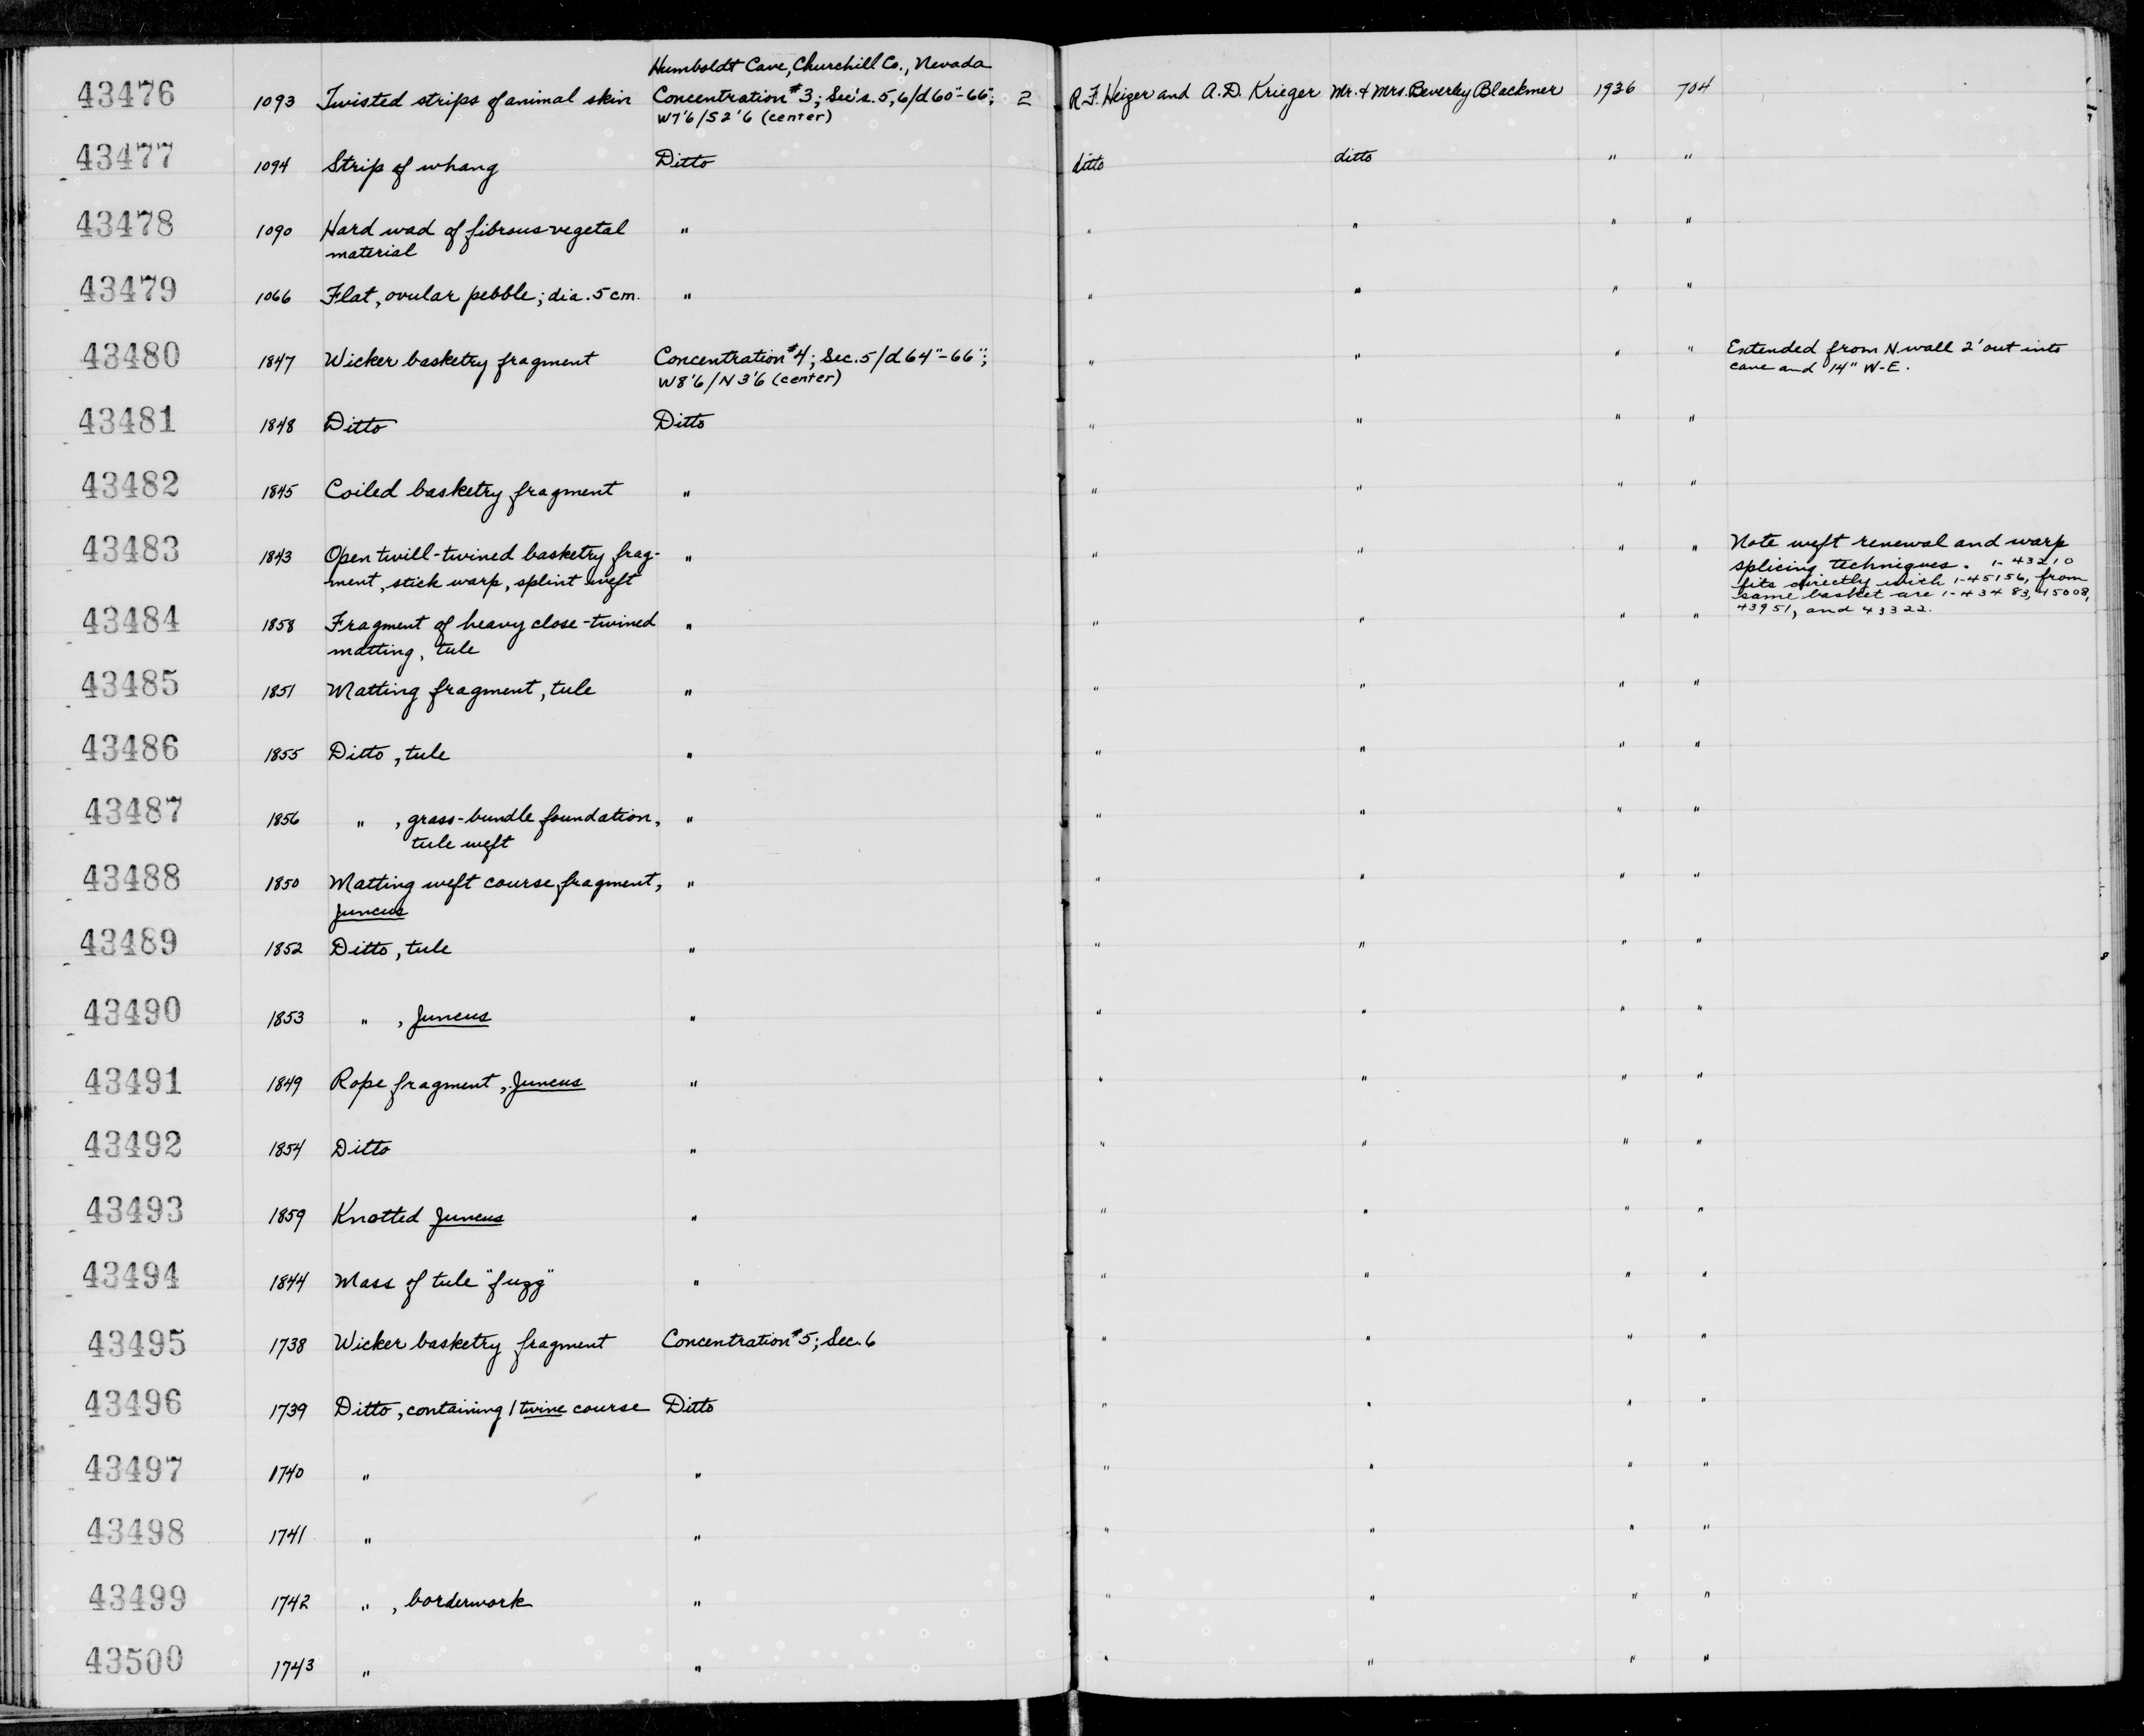 Humboldt Cave, Churchill Co., Nevada
43476 1093 Twisted strips of animal skin Concentration #3; Sec's. 5,6/d 60"-66"; 2 R.F. Heizer and A.D. Krieger Mr. & Mrs. Beverley Blackmer 1936 704
W7'6/S2'6 (center)
43477 1094 Strip of whang Ditto ditto ditto " "
43478 1090 Hard wad of fibrous vegetal " " " " "
material
43479 1066 Flat, ovular pebble; dia. 5 cm. " " " " "
43480 1847 Wicker basketry fragment Concentration #4; Sec. 5/d 64"-66"; " " " " Extended from N wall 2' out into
W8'6/N3'6 (center) cave and 14" W-E.
43481 1848 Ditto Ditto " " " "
43482 1845 Coiled basketry fragment " " " " "
43483 1843 Open twill-twined basketry frag- " " " " " Note weft renewal and warp
ment, stick warp, splint weft splicing techniques. 1-43210
fits directly with 1-45156, from
same basket are 1-43483, 45008,
43951, and 43322.
43484 1858 Fragment of heavy close-twined " " " " "
matting, tule
43485 1851 Matting fragment, tule " " " " "
43486 1855 Ditto, tule " " " " "
43487 1856 " , grass-bundle foundation, " " " " "
tule weft
43488 1850 Matting weft course fragment, " " " " "
Juncus
43489 1852 Ditto, tule " " " " "
43490 1853 " , Juncus " " " " "
43491 1849 Rope fragment, Juncus " " " " "
43492 1854 Ditto " " " " "
43493 1859 Knotted Juncus " " " " "
43494 1844 Mass of tule "fuzz" " " " " "
43495 1738 Wicker basketry fragment Concentration #5; Sec. 6 " " " "
43496 1739 Ditto, containing 1 twine course Ditto " " " "
43497 1740 " " " " " "
43498 1741 " " " " " "
43499 1742 " , borderwork " " " " "
43500 1743 " " " " " "